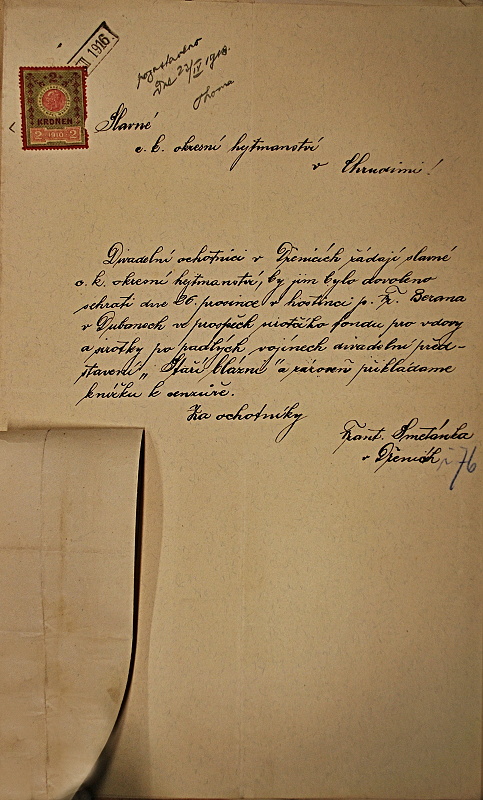 III 1916
Dne 23/IV 1918.
2
KRONEN
2 1910 2
Slavné
c. k. okresní hejtmanství
v Chrudimi!
Divadelní ochotníci v Dřenicích žádají slavné
c. k. okresní hejtmanství, by jim bylo dovoleno
sehrati dne 26. prosince v hostinci p. Fr. Berana
v Dubanech ve prospěch sirotčího fondu pro vdovy
a sirotky po padlých vojínech divadelní před-
stavení „Staří blázni" a zároveň přikládáme
knížku k censuře.
Za ochotníky
Frant. Smetánka
v Dřenicích
76